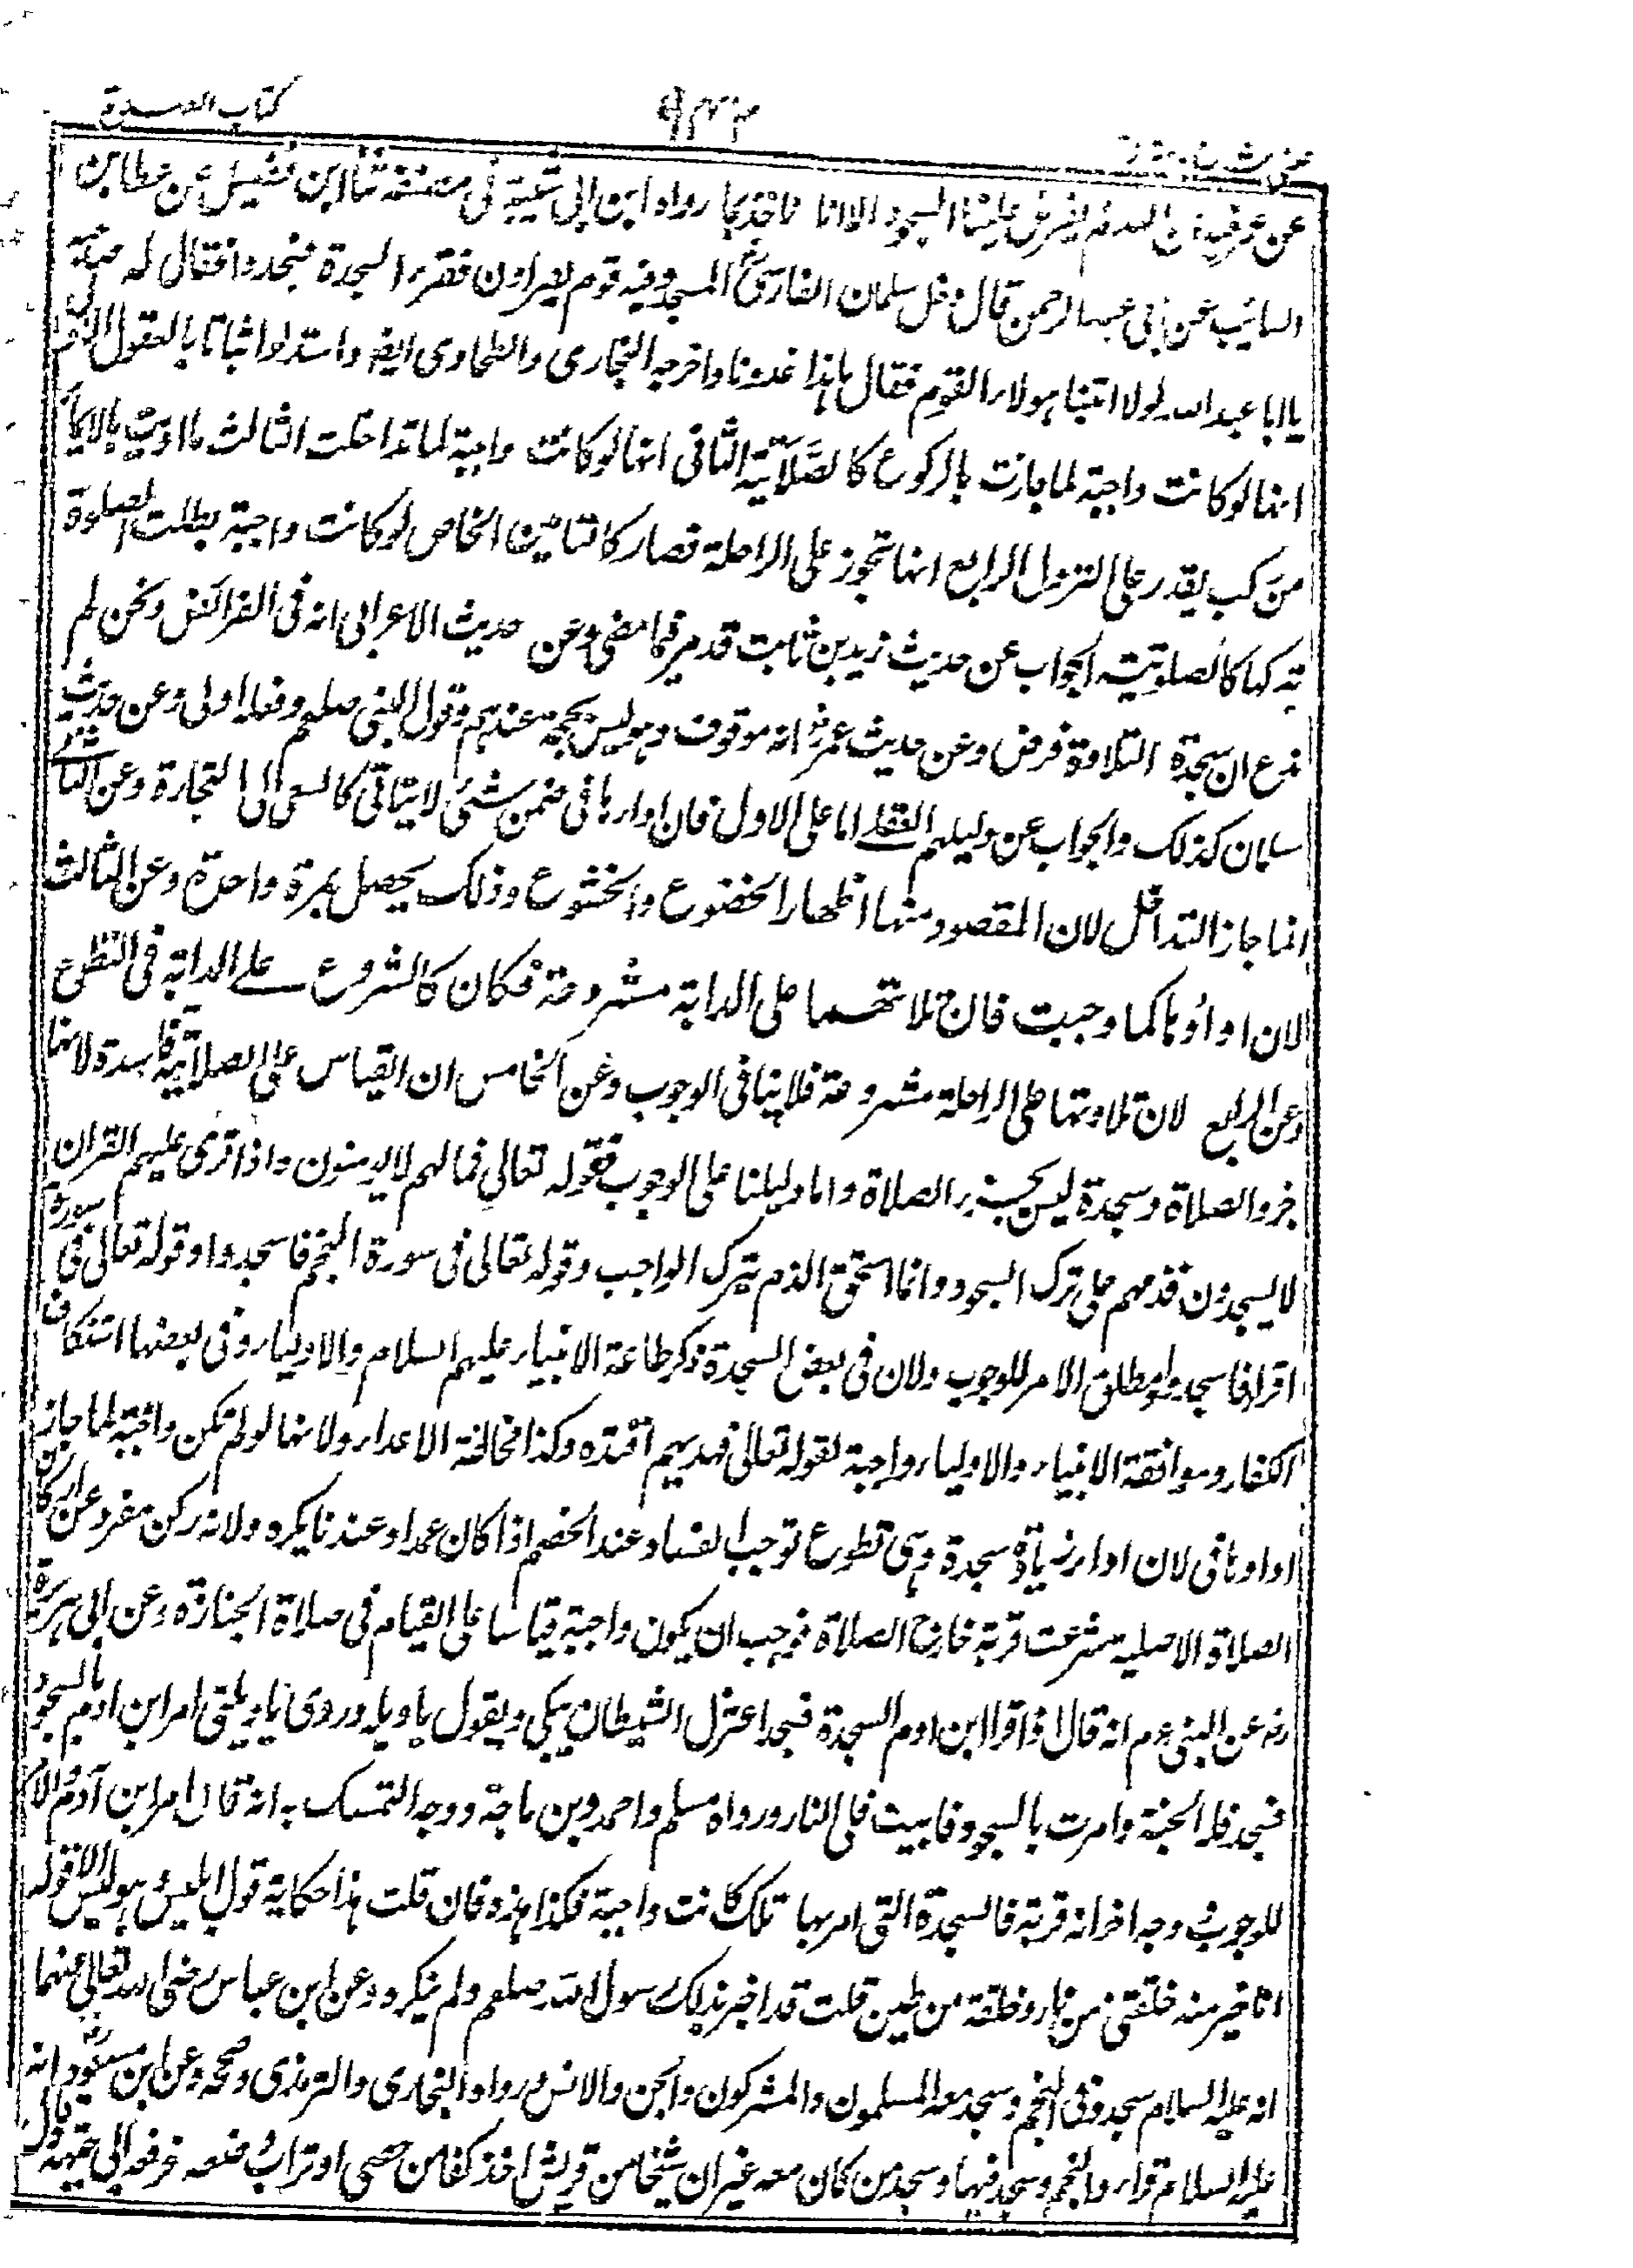 كتاب الصلوة
عن عمر رضـ ان الله لم يفرض علينا السجود الا ان نشاء رواه ابن ابي شيبة في مصنفه ثنا ابن فضيل عن عطا بن
السائب عن ابي عبد الرحمن قال دخل سلمان الفارسي المسجد وفيه قوم يقراون فقرء السجدة فسجدوا فقال له صاحبه
يا ابا عبد الله لولا اتينا هولاء القوم فقال ما لهذا غدونا واخرجه البخاري والطحاوي ايضا واستدلوا ثباتا بالعقول الاول
انها لو كانت واجبة لما جازت بالركوع كالصلاتية الثاني انها لو كانت واجبة لما تداخلت الثالث ما اديت بالايماء
من ركب يقدر على النزول الرابع انها تجوز على الراحلة فصار كالتامين الخامس لو كانت واجبة بطلت الصلوة
بتركها كالصلوتية الجواب عن حديث زيد بن ثابت قد مر فيما مضى وعن حديث الاعرابي انه في الفرائض ونحن لم
ندع ان سجدة التلاوة فرض وعن حديث عمر رضـ انه موقوف وهو ليس بحجة عندهم وقول النبي صلعم وفعله اولى وعن حديث
سلمان كذلك والجواب عن دليلهم العقلے اما على الاول فان اداءها في ضمن شيئ لا ينافي كالسعي الى التجارة وعن الثاني
انما جاز التداخل لان المقصود منها اظهار الخضوع والخشوع وذلك يحصل بمرة واحدة وعن الثالث
لان اداؤها كما وجبت فان تلاوتها على الدابة مشروعة فكان كالشروع علے الدابة في التطوع
وعن الرابع لان تلاوتها على الراحلة مشروعة فلا ينافي الوجوب وعن الخامس ان القياس على الصلاتية فاسدة لانها
جزء الصلاة وسجدة ليس بجزء الصلاة واما دليلنا على الوجوب فقوله تعالى فما لهم لا يومنون واذا قرئ عليهم القران
لا يسجدون فذمهم على ترك السجود وانما استحق الذم بترك الواجب وقوله تعالى في سورة النجم فاسجدوا وقوله تعالى في سورة
اقرا فاسجد ومطلق الامر للوجوب ولان في بعض السجدة ذكر طاعة الانبياء عليهم السلام والاولياء وفي بعضها استنكاف
الكفار وموافقة الانبياء والاولياء واجبة لقوله تعالى فبهديهم اقتده وكذا مخالفة الاعداء ولانها لو لم تكن واجبة لما جاز
اداوها في لان اداء زيادة سجدة وهي تطوع توجب الفساد عند الخصم اذا كان عمدا وعندنا يكره ولانه ركن مفرد عن اركان
الصلاة الاصلية شرعت قربة خارج الصلاة فوجب ان يكون واجبة قياسا على القيام في صلاة الجنازة وعن ابي هريرة
رضـ عن النبي عم انه قال اذا قرا ابن ادم السجدة فسجد اعتزل الشيطان يبكي ويقول يا ويله وروى يا ويلتى امر ابن ادم بالسجود
فسجد فله الجنة وامرت بالسجود فابيت فلى النار ورواه مسلم واحمد وبن ماجة ووجه التمسك به انه قال امر ابن آدم والامر
للوجوب وجه اخر انه قربة فالسجدة التي امر بها تلك كانت واجبة فكذا هذه فان قلت هذا حكاية قول ابليس وهو ليس الا قوله
انا خير منه خلقتني من نار وخلقته من طين قلت قد اخبر بذلك رسول الله صلعم ولم ينكره وعن ابن عباس رضى الله تعالى عنهما
انه عليه السلام سجد في النجم وسجد معه المسلمون والمشركون والجن والانس ورواه البخاري والترمذي وصححه وعن ابن مسعود رضـ انه
عليه السلام قراء والنجم وسجد فيها وسجد من كان معه غير ان شيخا من قريش اخذ كفا من حصى او تراب فرفعه الى جبهته وقال